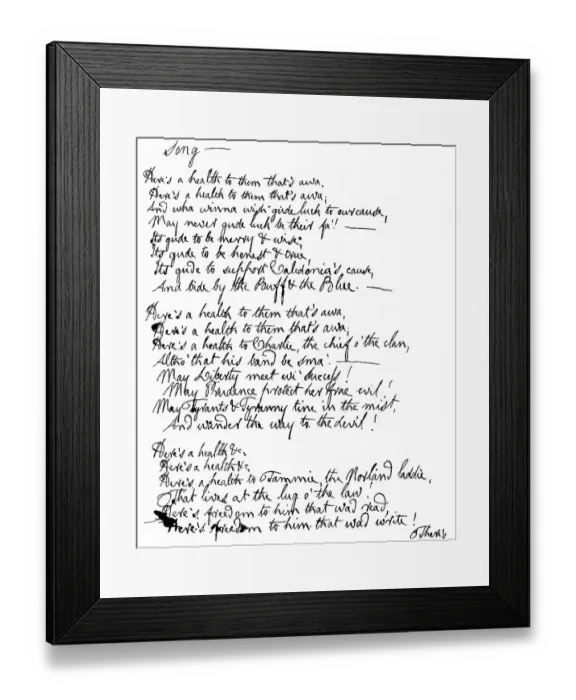 Song —
Here's a health to them that's awa,
Here's a health to them that's awa,
And wha winna wish gude luck to our cause,
May never gude luck be their fa'! —
Its gude to be merry & wise,
Its gude to be honest & true,
Its gude to support Caledonia's cause,
And bide by the Buff & the Blue. —
Here's a health to them that's awa,
Here's a health to them that's awa,
Here's a health to Charlie, the chief o' the clan,
Altho' that his band be sma'. —
May Liberty meet wi' success!
May Prudence protect her frae evil!
May Tyrants & Tyranny tine in the mist,
And wander the way to the devil!
Here's a health &c.
Here's a health &c.
Here's a health to Tammie, the Norland laddie,
That lives at the lug o' the law!
Here's freedom to him that wad read,
Here's freedom to him that wad write!